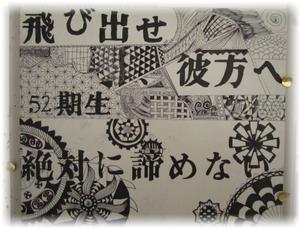 飛び出せ
彼方へ
52期生
絶対に諦めない